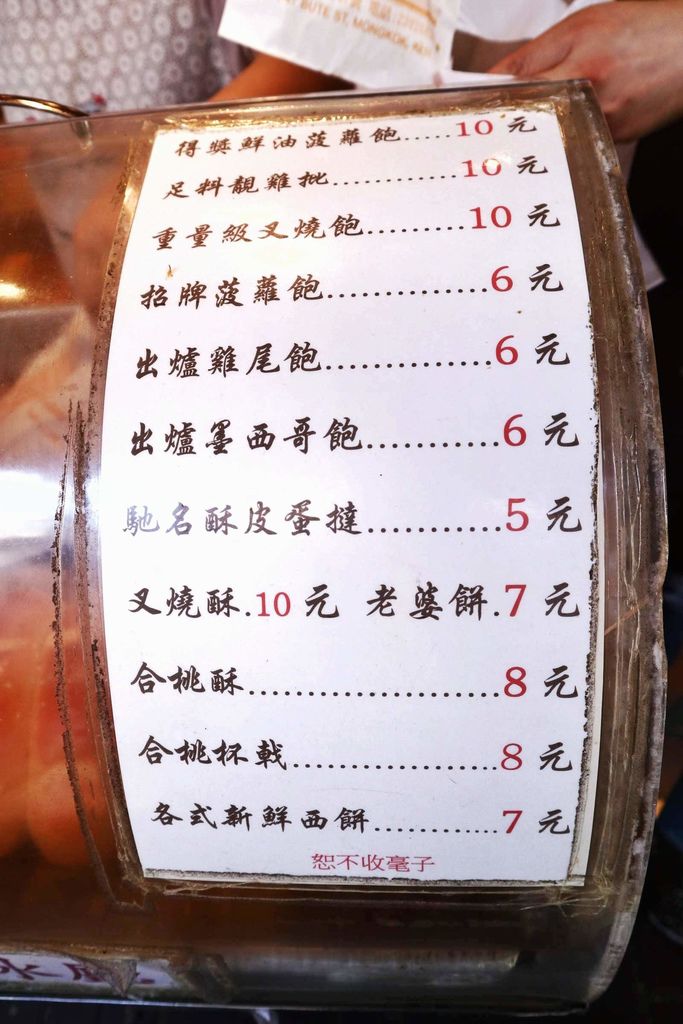 BUTE ST, MONGKOK, KLN
得獎鮮油菠蘿飽.....10 元
足料靚雞批............10 元
重量級叉燒飽.........10 元
招牌菠蘿飽..............6 元
出爐雞尾飽..............6 元
出爐墨西哥飽...........6 元
馳名酥皮蛋撻...........5 元
叉燒酥.10 元 老婆餅.7 元
合桃酥.....................8 元
合桃杯戟..................8 元
各式新鮮西餅............7 元
恕不收毫子